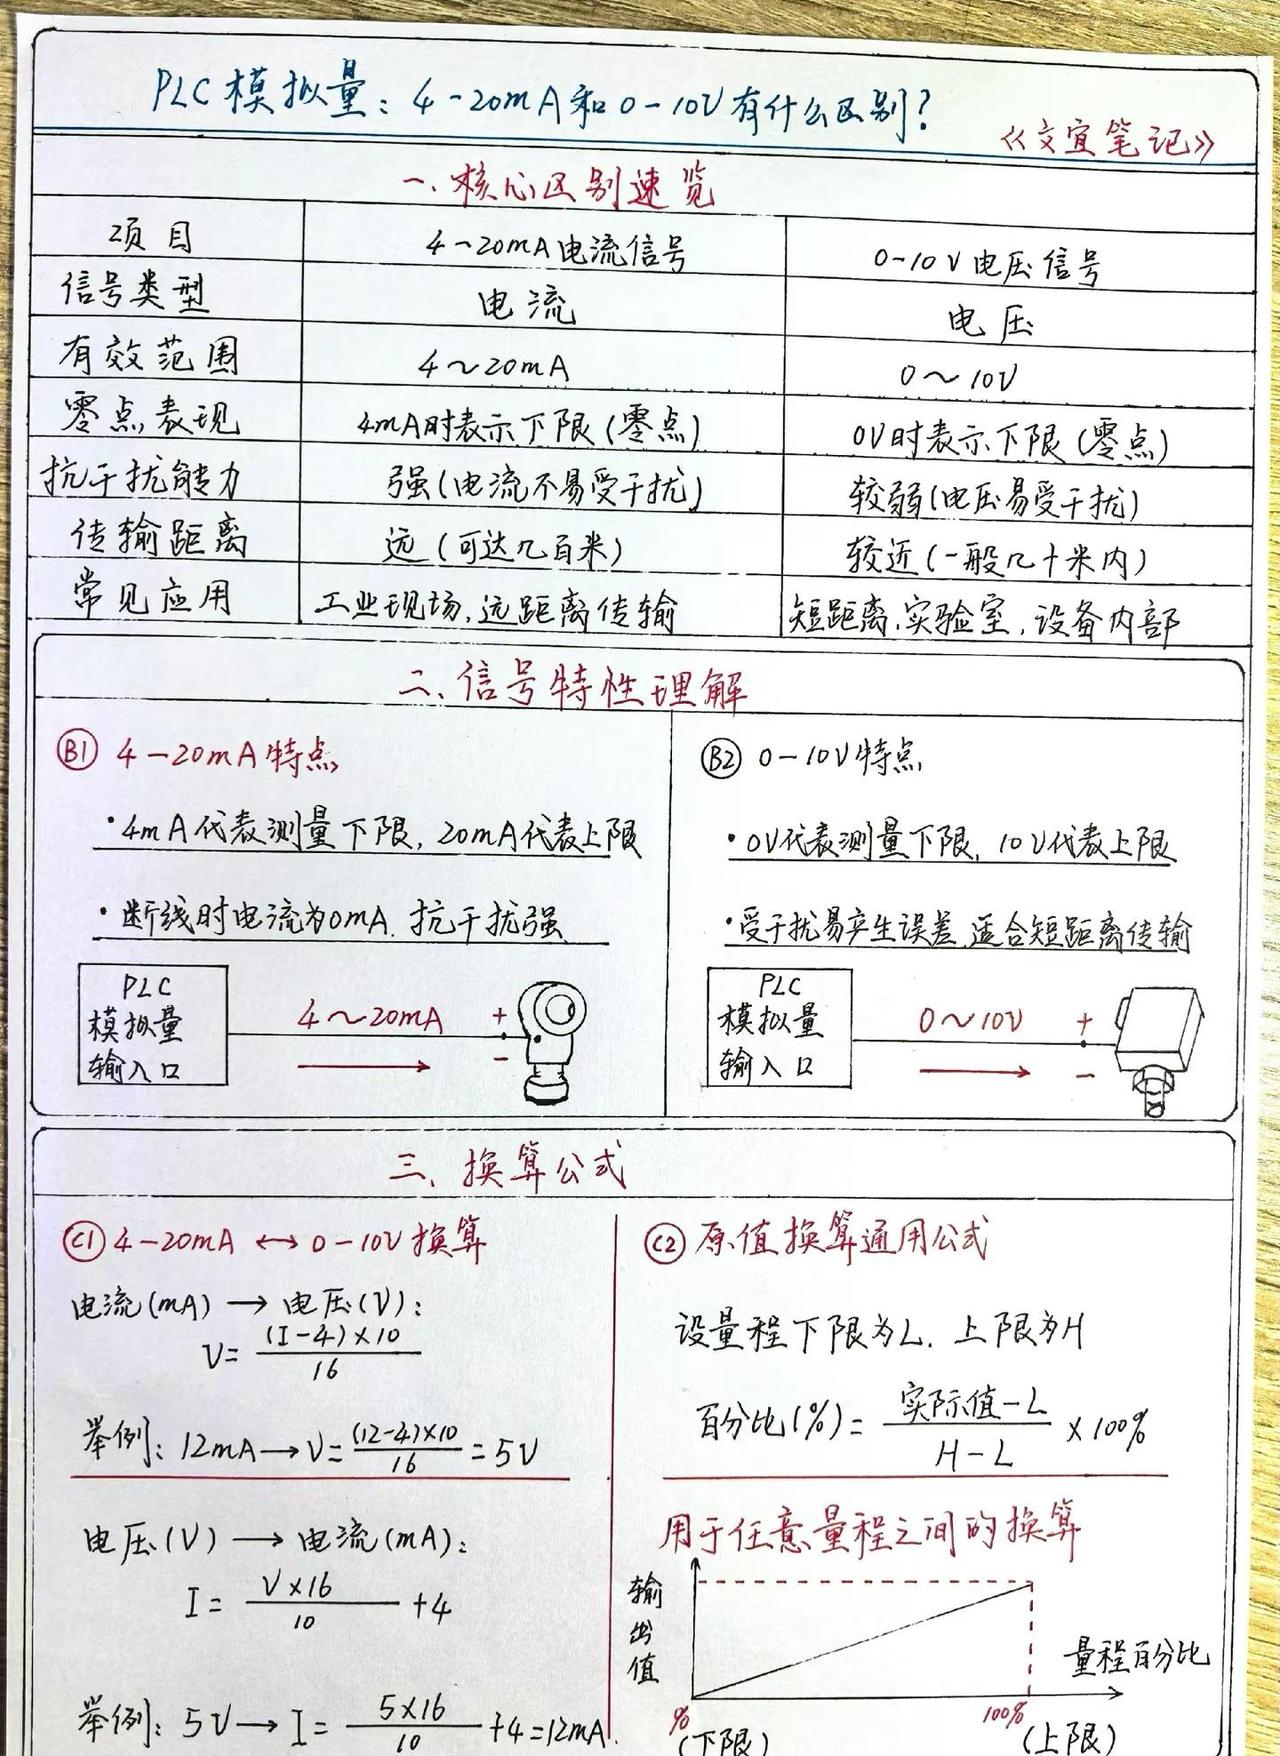 PLC模拟量：4-20mA和0-10V有什么区别？
《文宜笔记》
一、核心区别速览
项目 4-20mA电流信号 0-10V电压信号
信号类型 电流 电压
有效范围 4～20mA 0～10V
零点表现 4mA时表示下限(零点) 0V时表示下限(零点)
抗干扰能力 强(电流不易受干扰) 较弱(电压易受干扰)
传输距离 远(可达几百米) 较近(一般几十米内)
常见应用 工业现场,远距离传输 短距离,实验室,设备内部
二、信号特性理解
B1 4-20mA特点
·4mA代表测量下限,20mA代表上限
·断线时电流为0mA.抗干扰强
PLC
模拟量
输入口
4～20mA
+
-
B2 0-10V特点
·0V代表测量下限,10V代表上限
·受干扰易产生误差,适合短距离传输
PLC
模拟量
输入口
0～10V
+
-
三、换算公式
C1 4-20mA ↔ 0-10V换算
电流(mA) → 电压(V)：
V= (I-4)×10
16
举例：12mA→V= (12-4)×10 = 5V
16
电压(V) → 电流(mA)：
I= V×16 +4
10
举例：5V→I= 5×16 +4=12mA
10
C2 原值换算通用公式
设量程下限为L.上限为H
百分比(%)= 实际值-L ×100%
H-L
用于任意量程之间的换算
输出值
量程百分比
% 100%
(下限) (上限)